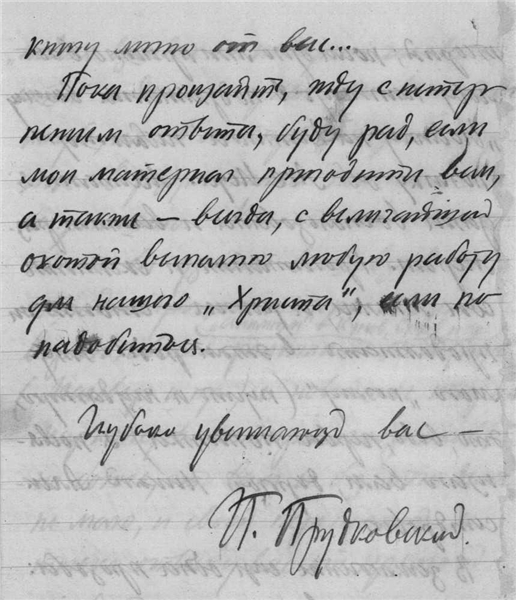 книгу лично от вас...
Пока прощайте, жду с нетер-
пением ответа, буду рад, если
мой материал пригодится вам,
а также — всегда, с величайшей
охотой выполню любую работу
для нашего „Христа", если по-
надобится.
Глубоко уважающий вас —
П. Прудковский.